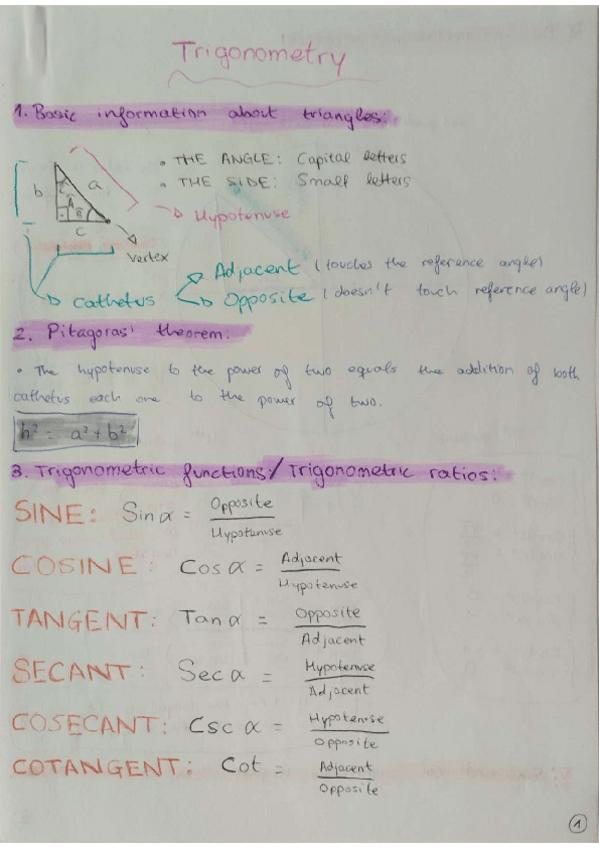 Trigonometry
1. Basic information about triangles:
• THE ANGLE: Capital letters
• THE SIDE: Small letters
b
a
Ĉ
Â
B̂
C
Hypotenuse
Vertex
Adjacent (touches the reference angle)
Cathetus
Opposite (doesn't touch reference angle)
2. Pitagoras' theorem:
• The hypotenuse to the power of two equals the addition of both
cathetus each one to the power of two.
h² = a² + b²
3. Trigonometric functions/Trigonometric ratios:
SINE: Sin α = Opposite / Hypotenuse
COSINE: Cos α = Adjacent / Hypotenuse
TANGENT: Tan α = Opposite / Adjacent
SECANT: Sec α = Hypotenuse / Adjacent
COSECANT: Csc α = Hypotenuse / Opposite
COTANGENT: Cot = Adjacent / Opposite
1